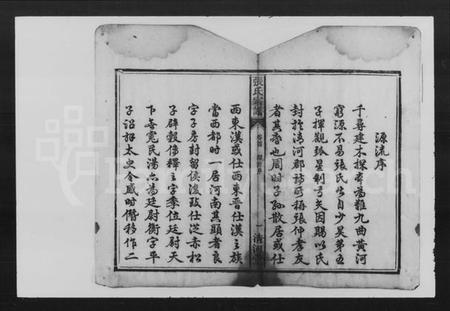 源流序
千尋建木探本爲難九曲黃河
窮源不易張氏出自少昊第五
子揮觀弧星制弓矢因賜以氏
封於清河郡詩所稱張仲孝友
者其裔也周時子孫散居或仕
張氏宗譜
卷首 源流序
一
清河堂
西東漢或仕西東晉仕漢之族
當西都時一居河南其顯者良
字子房封留侯後致仕從赤松
子辟穀傳釋之字季位廷尉天
下無冤民湯亦爲廷尉衡字平
子詔拜太史令感時僭移作二